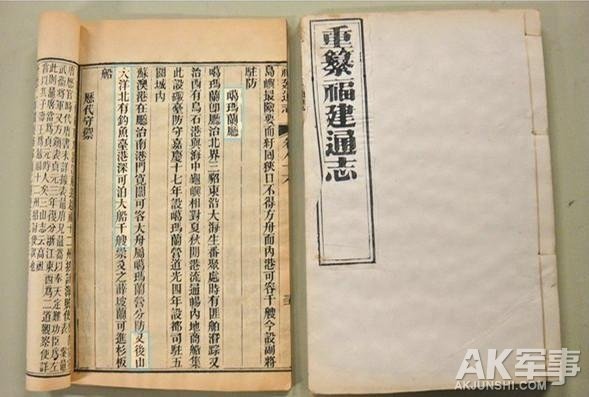 重纂福建通志
福建通志
島嶼最險要而紆囘狹口不得方舟而內港可容千艘今設副將
駐防
噶瑪蘭廳
噶瑪蘭即廳治北界三貂東沿大海生番聚處時有匪舶潛踪又
治西有烏石港與海中龜嶼相對夏秋間港流通暢內地商船集
此設礮臺防守嘉慶十七年設噶瑪蘭營道光四年設都司駐五
圍城內
蘇澳港在廳治南港門寬闊可容大舟屬噶瑪蘭營分防又後山
大洋北有釣魚臺港深可泊大船千艘崇爻之薜坡蘭可進杉板
船
歷代守禦
AK军事
AKJUNSHI.COM